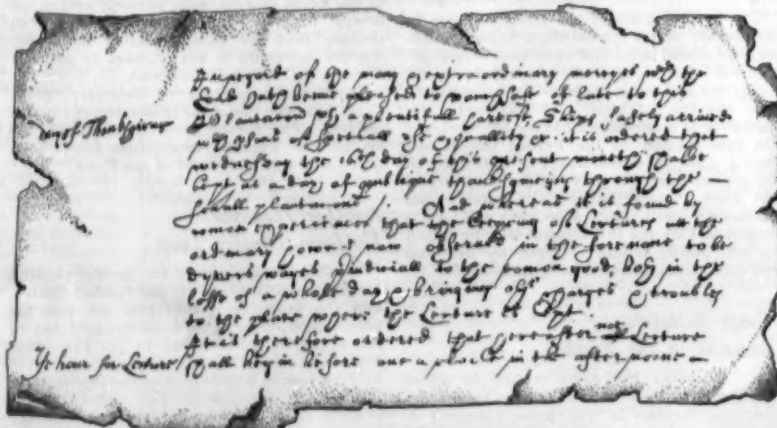 In regard of the many & extraordinary mercyes wch the
Lord hath beene pleased to vouchsafe of late to this
day of Thanksgiveing
plantacon vz a plentifull harvest, Ships safely arrived
wth psons of spetiall vse & quallity &c it is ordered that
wednesday the 16th day of this present moneth shalbe
kept as a day of publique thanksgiveing through the —
seuall plantacons. And whereas it is found by
comon experience that the keepeing of Lectures att the
ordinary howres now obserued in the forenoone to be
dyvers wayes preiudiciall to the comon good, both in the
losse of a whole day & bringing othr charges & troubles
to the place where the Lecture is kept.
It is therefore ordered that hereafter noe Lecture
Ye hour for Lecture
shall begin before one a clocke in the afternoone —